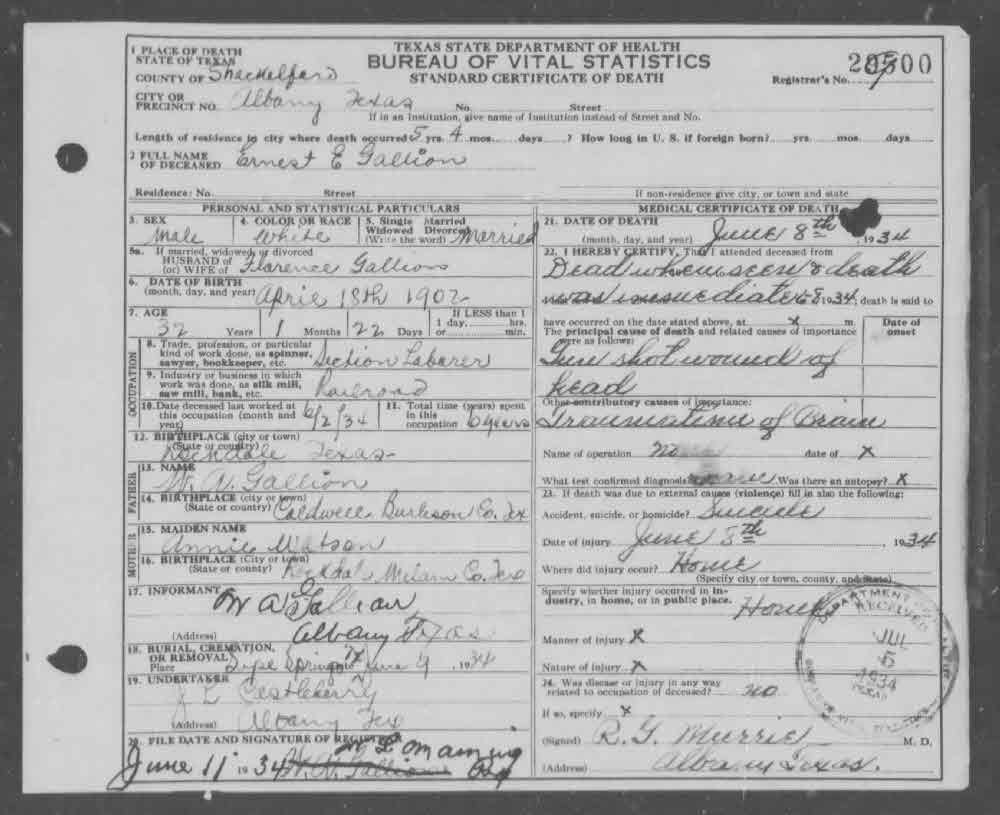 TEXAS STATE DEPARTMENT OF HEALTH
BUREAU OF VITAL STATISTICS
STANDARD CERTIFICATE OF DEATH
Registrar's No.
1 PLACE OF DEATH
STATE OF TEXAS
COUNTY OF Shackelford
CITY OR PRECINCT NO. Albany Texas No. Street
If in an Institution, give name of Institution instead of Street and No.
Length of residence in city where death occurred 5 yrs. 4 mos. days ? How long in U. S. if foreign born? yrs. mos. days
2 FULL NAME OF DECEASED Ernest E Gallion
Residence: No. Street If non-residence give city, or town and state
PERSONAL AND STATISTICAL PARTICULARS
3. SEX Male
4. COLOR OR RACE White
5. Single Married Widowed Divorced (Write the word) Married
5a. If married, widowed, or divorced
HUSBAND of (or) WIFE of Florence Gallion
6. DATE OF BIRTH (month, day, and year) April 18th 1902
7. AGE 32 Years 1 Months 22 Days
If LESS than 1 day, hrs. or min.
OCCUPATION
8. Trade, profession, or particular kind of work done, as spinner, sawyer, bookkeeper, etc. Section Laborer
9. Industry or business in which work was done, as silk mill, saw mill, bank, etc. Railroad
10. Date deceased last worked at this occupation (month and year) 6/2/34
11. Total time (years) spent in this occupation 6 years
12. BIRTHPLACE (city or town) (State or country) Texas
FATHER
13. NAME W. A. Gallion
14. BIRTHPLACE (city or town) (State or country) Caldwell Burleson Co. Tex
MOTHER
15. MAIDEN NAME Annie Watson
16. BIRTHPLACE (City or town) (State or county) Milam Co. Tex
17. INFORMANT W A Gallion
(Address) Albany Texas
18. BURIAL, CREMATION, OR REMOVAL
Place Springs Tx June 9 1934
19. UNDERTAKER Castleberry
(Address) Albany Tex
20. FILE DATE AND SIGNATURE OF REGISTRAR
June 11 1934
MEDICAL CERTIFICATE OF DEATH
21. DATE OF DEATH
(month, day, and year) June 8th, 1934
22. I HEREBY CERTIFY, That I attended deceased from
Dead when seen & death
was immediate 1934, death is said to
have occurred on the date stated above, at X m.
The principal cause of death and related causes of importance were as follows:
Date of onset
Gun shot wound of
head
Other contributory causes of importance:
of Brain
Name of operation no date of X
What test confirmed diagnosis Was there an autopsy? X
23. If death was due to external causes (violence) fill in also the following:
Accident, suicide, or homicide? Suicide
Date of injury June 8th, 1934
Where did injury occur? Home
(Specify city or town, county, and State)
Specify whether injury occurred in industry, in home, or in public place. Home
Manner of injury X
Nature of injury X
24. Was disease or injury in any way related to occupation of deceased? no
If so, specify X
(Signed) R. G. Murrie M. D.
(Address) Albany Texas.
RECEIVED
JUL
5
1934
TEXAS